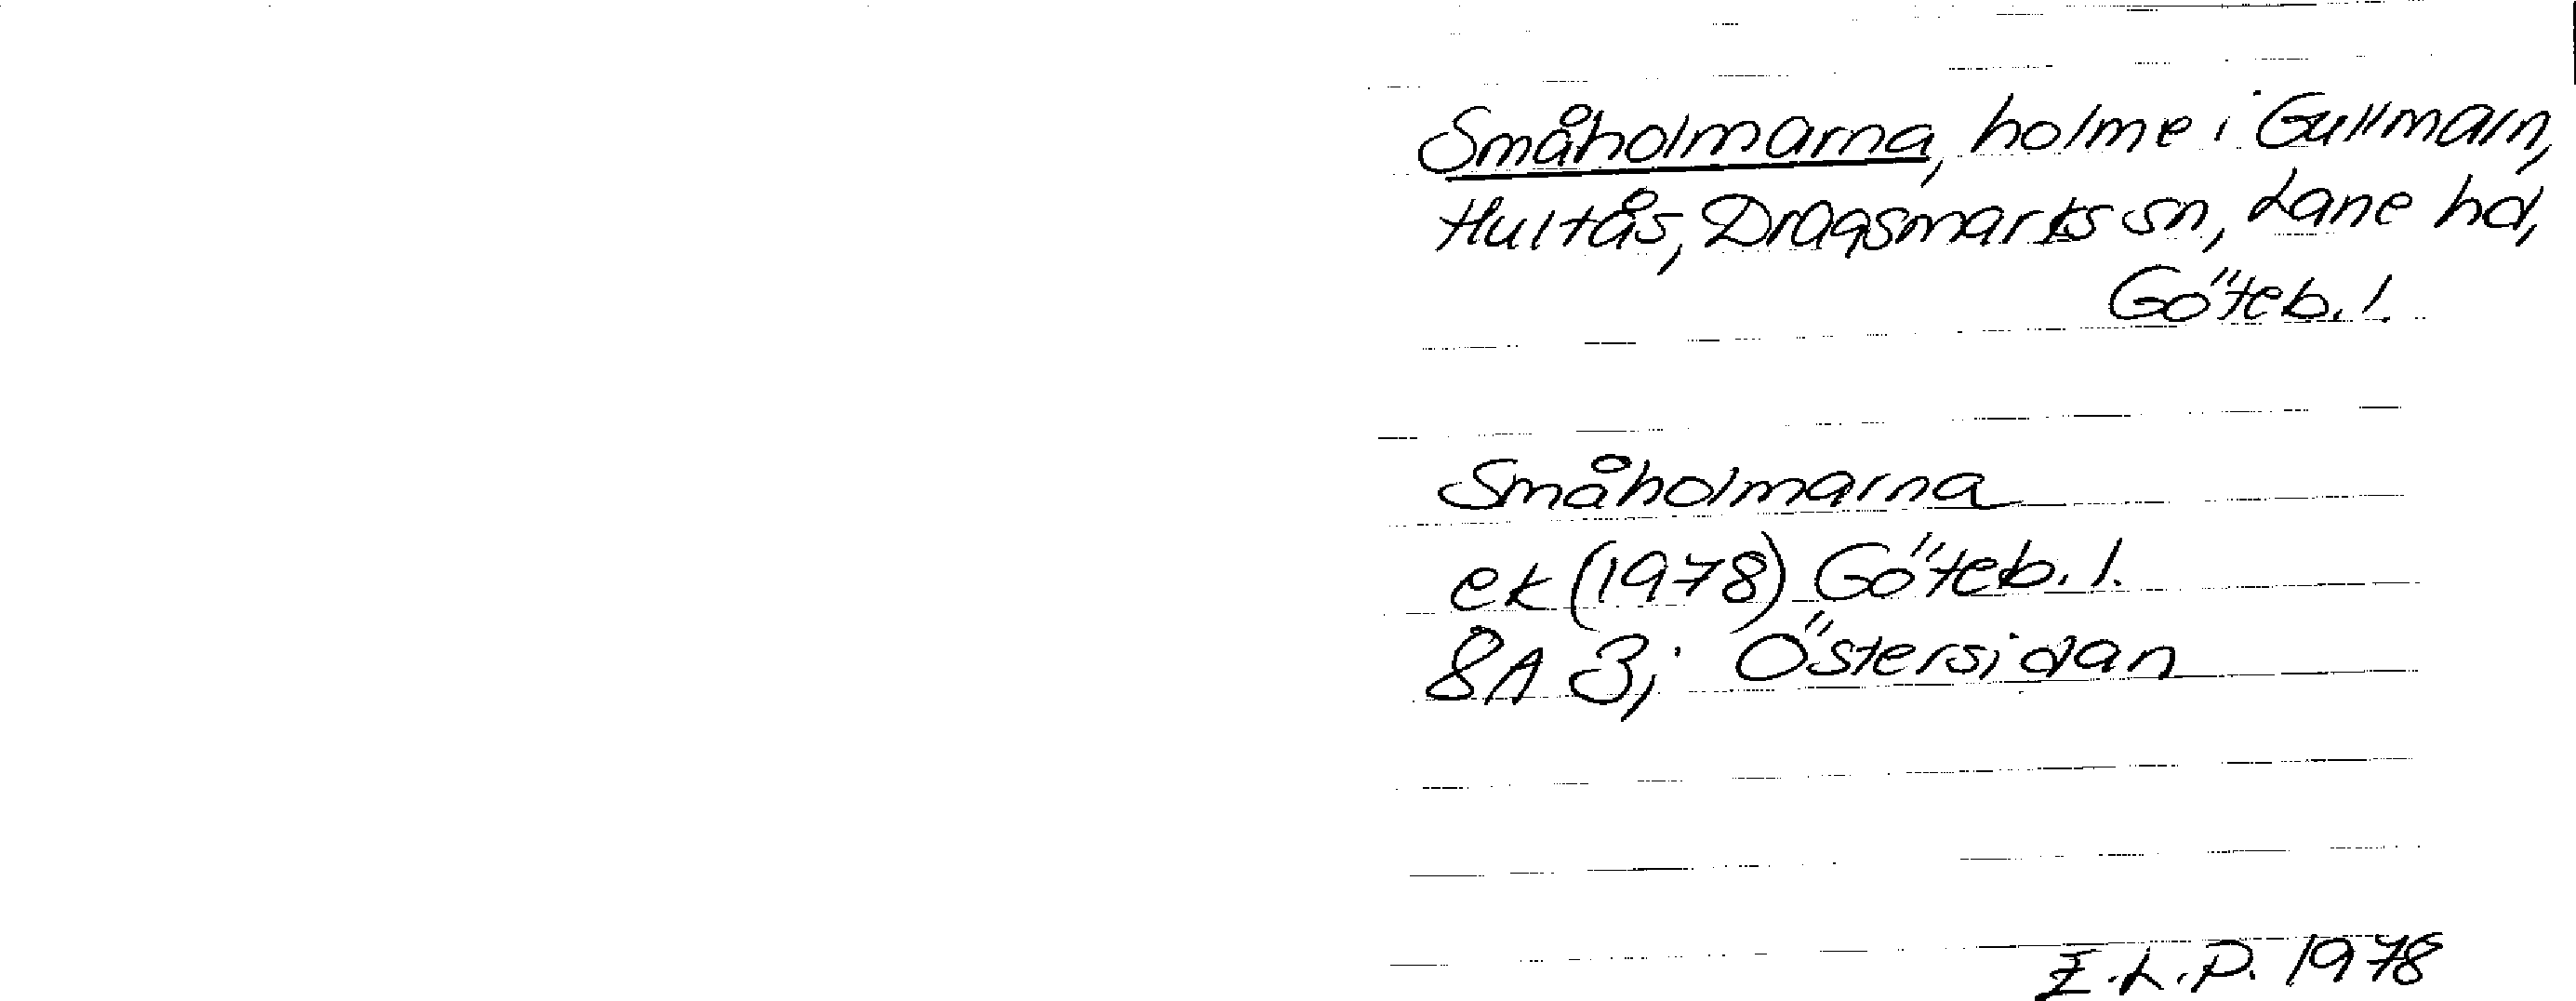 Småholmarna, holme i Gullmarn,
Hultås, Dragsmarks sn, Lane hd,
Göteb. l.
Småholmarna
ek (1978) Göteb. l.
8A 3; Östersidan
E.L.P. 1978